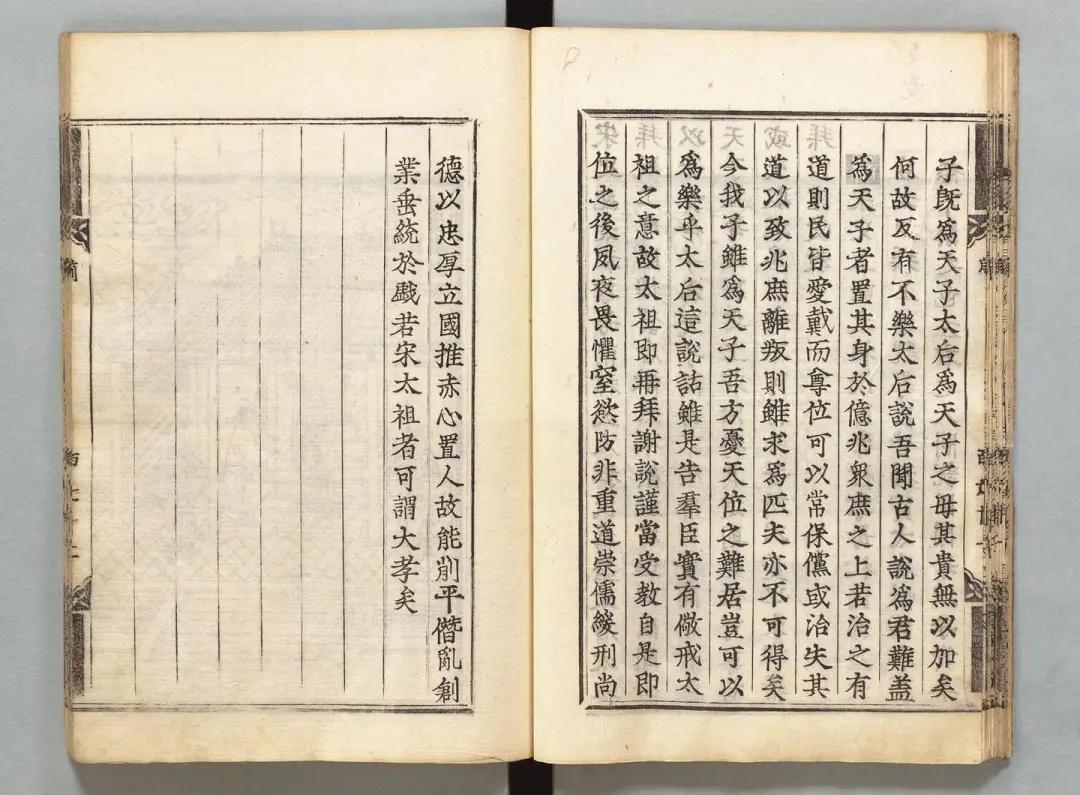 子既爲天子太后爲天子之母其貴無以加矣
何故反有不樂太后說吾聞古人說爲君難蓋
爲天子者置其身於億兆衆庶之上若治之有
道則民皆愛戴而尊位可以常保儻或治失其
道以致兆庶離叛則雖求爲匹夫亦不可得矣
今我子雖爲天子吾方憂天位之難居豈可以
爲樂乎太后這說話雖是告羣臣實有儆戒太
祖之意故太祖即再拜謝說謹當受教自是即
位之後夙夜畏懼窒慾防非重道崇儒緩刑尚
德以忠厚立國推赤心置人故能削平僭亂創
業垂統於戲若宋太祖者可謂大孝矣